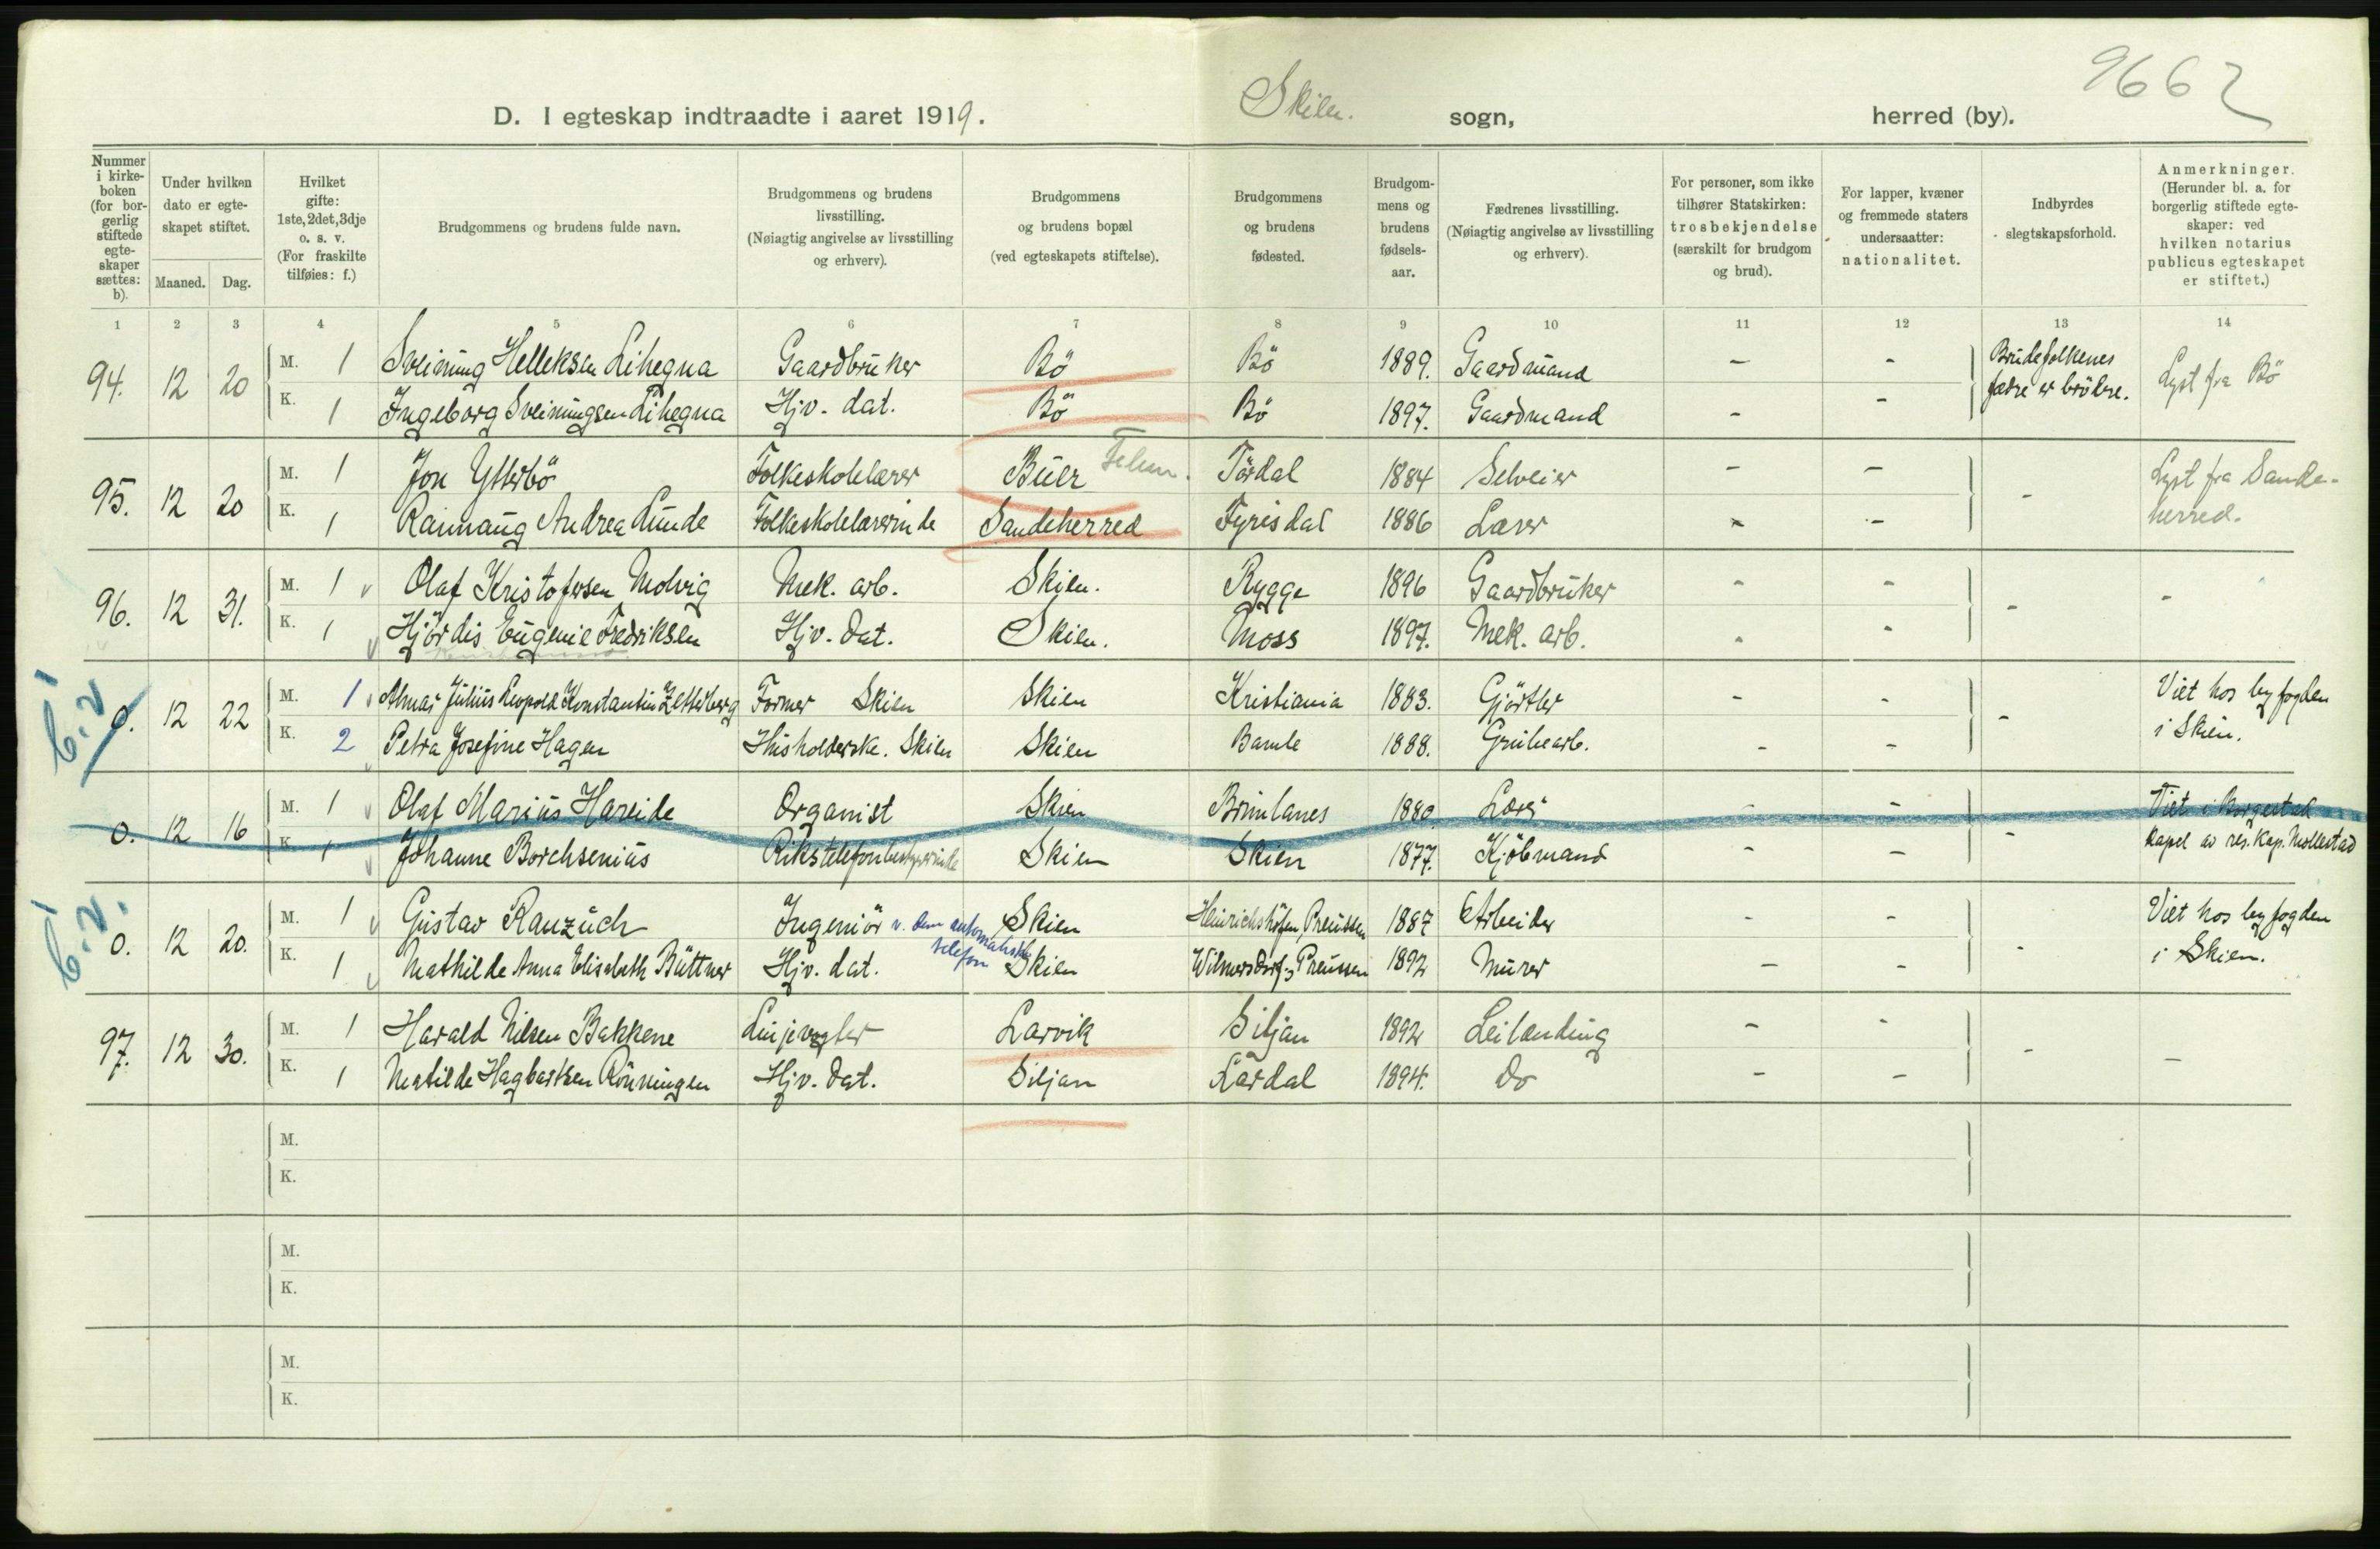 9662
D. I egteskap indtraadte i aaret 1919. Skien. sogn, herred (by).
Nummer i kirkeboken (for borgerlig stiftede egteskaper sættes: b).
Under hvilken dato er egteskapet stiftet.
Maaned. Dag.
Hvilket gifte: 1ste, 2det, 3dje o. s. v. (For fraskilte tilføies: f.)
Brudgommens og brudens fulde navn.
Brudgommens og brudens livsstilling. (Nøiagtig angivelse av livsstilling og erhverv).
Brudgommens og brudens bopæl (ved egteskapets stiftelse).
Brudgommens og brudens fødested.
Brudgommens og brudens fødselsaar.
Fædrenes livsstilling. (Nøiagtig angivelse av livsstilling og erhverv).
For personer, som ikke tilhører Statskirken: trosbekjendelse (særskilt for brudgom og brud).
For lapper, kvæner og fremmede staters undersaatter: nationalitet.
Indbyrdes slegtskapsforhold.
Anmerkninger. (Herunder bl. a. for borgerlig stiftede egteskaper: ved hvilken notarius publicus egteskapet er stiftet.)
1 2 3 4 5 6 7 8 9 10 11 12 13 14
94. 12 20 M. 1 Sveinung Helleksen Lihegna Gaardbruker Bö Bö 1889. Gaardmand - - Brudefolkenes fædre er brödre. Lyst fra Bö
K. 1 Ingeborg Sveinungsen Lihegna Hjv. dat. Bö Bö 1897. Gaardmand - -
95. 12 20 M. 1 Jon Ytterbö Folkeskolelærer Buer Telem. Tördal 1884 Selveier - - - Lyst fra Sandeherred.
K. 1 Rannaug Andrea Lunde Folkeskolelærerinde Sandeherred Fyrisdal 1886 Lærer - -
96. 12 31. M. 1 Olaf Kristofersen Molvig Mek. arb. Skien. Rygge 1896 Gaardbruker - - - -
K. 1 Hjördis Eugenie Fredriksen Hjv. dat. Skien. Moss 1897. Mek. arb. - -
b.v. 0. 12 22 M. 1 Almar Julius Leopold Konstantin Zetterberg Former Skien Skien Kristiania 1883. Gjörtler - - - Viet hos byfogden i Skien.
K. 2 Petra Josefine Hagen Husholderske. Skien Skien Bamle 1888. Grubearb. - -
0. 12 16 M. 1 Olaf Marius Hareide Organist Skien Brunlanes 1880. Lærer - - - Viet i Borgestad kapel av res. kap. Mollestad
K. 1 Johanne Borchsenius Rikstelefonbestyrerinde Skien Skien 1877. Kjöbmand - -
b.v. 0. 12 20. M. 1 Gustav Ranzuch Ingeniör v. den automatiske telefon Skien Heinrichshöfen, Preussen 1887 Arbeider - - - Viet hos byfogden i Skien.
K. 1 Mathilde Anna Elisabeth Büttner Hjv. dat. Skien Wilmersdorf, Preussen 1892 Murer - -
97. 12 30. M. 1 Harald Nilsen Bakkene Linjevogter Larvik Siljan 1892 Leilænding - - - -
K. 1 Matilde Hagbartsen Rönningen Hjv. dat. Siljan Lardal 1894. Do - -
M.
K.
M.
K.
M.
K.